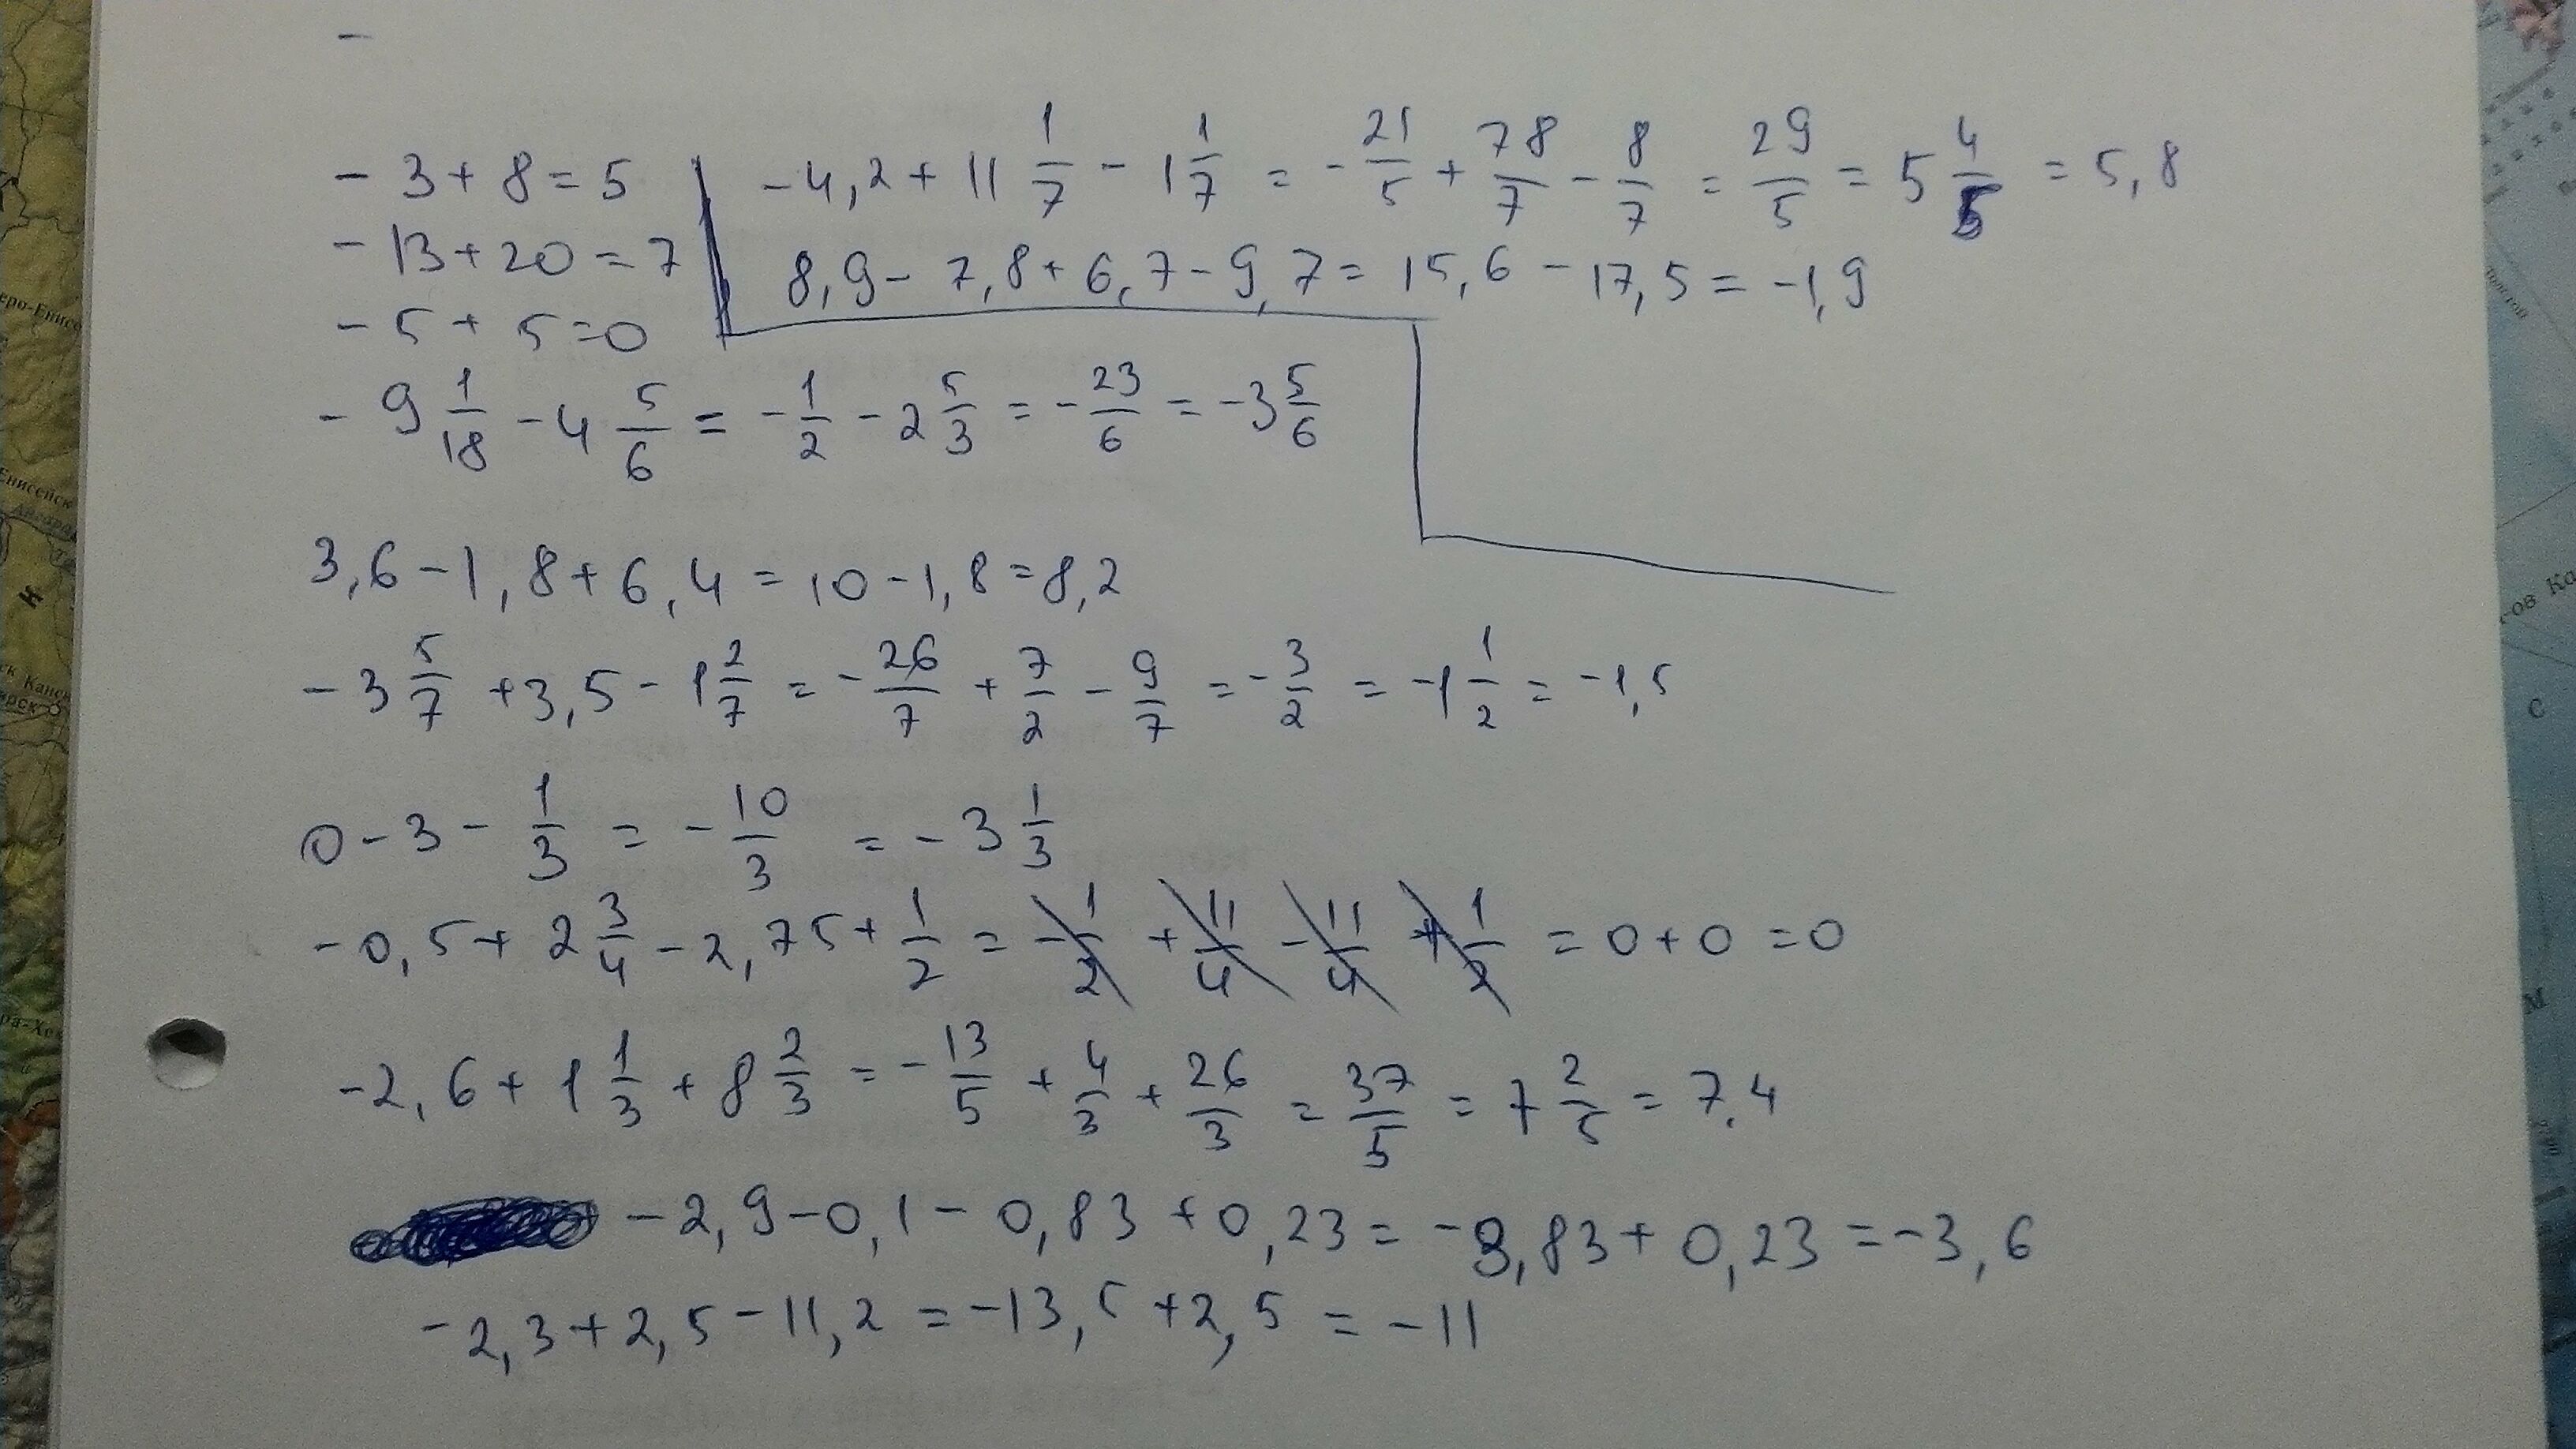 -3+8=5
-13+20=7
-5+5=0
-4,2+11 1/7 - 1 1/7 = -21/5 + 78/7 - 8/7 = 29/5 = 5 4/5 = 5,8
8,9-7,8+6,7-9,7=15,6-17,5=-1,9
-9 1/18 - 4 5/6 = -1/2 - 2 5/3 = -23/6 = -3 5/6
3,6-1,8+6,4=10-1,8=8,2
-3 5/7 +3,5 - 1 2/7 = -26/7 + 7/2 - 9/7 = -3/2 = -1 1/2 = -1,5
0-3- 1/3 = -10/3 = -3 1/3
-0,5+ 2 3/4 - 2,75 + 1/2 = -1/2 + 11/4 - 11/4 + 1/2 = 0+0=0
-2,6+ 1 1/3 + 8 2/3 = -13/5 + 4/3 + 26/3 = 37/5 = 7 2/5 = 7.4
-2,9-0,1-0,83+0,23=-3,83+0,23=-3,6
-2,3+2,5-11,2=-13,5+2,5=-11